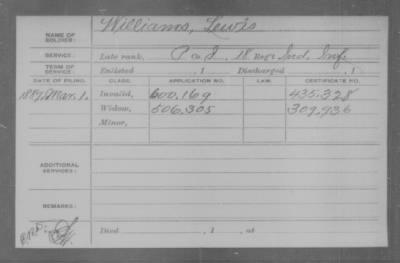 NAME OF SOLDIER: Williams, Lewis
SERVICE: Late rank, P Co. I, 18 Reg't Ind. Inf.
TERM OF SERVICE: Enlisted , 1 Discharged , 1
DATE OF FILING. CLASS. APPLICATION NO. LAW. CERTIFICATE NO.
1887, Mar. 1. Invalid, 600.169 435.328
Widow, 506.305 309.936
Minor,
ADDITIONAL SERVICES:
REMARKS:
Died , 1 , at